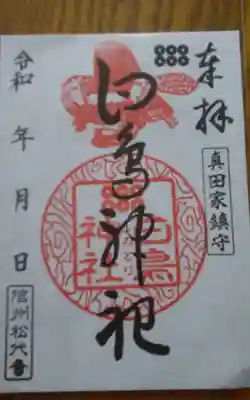 奉拝
真田家鎮守
白鳥神社
白鳥
神社
令和 年 月 日
信州松代